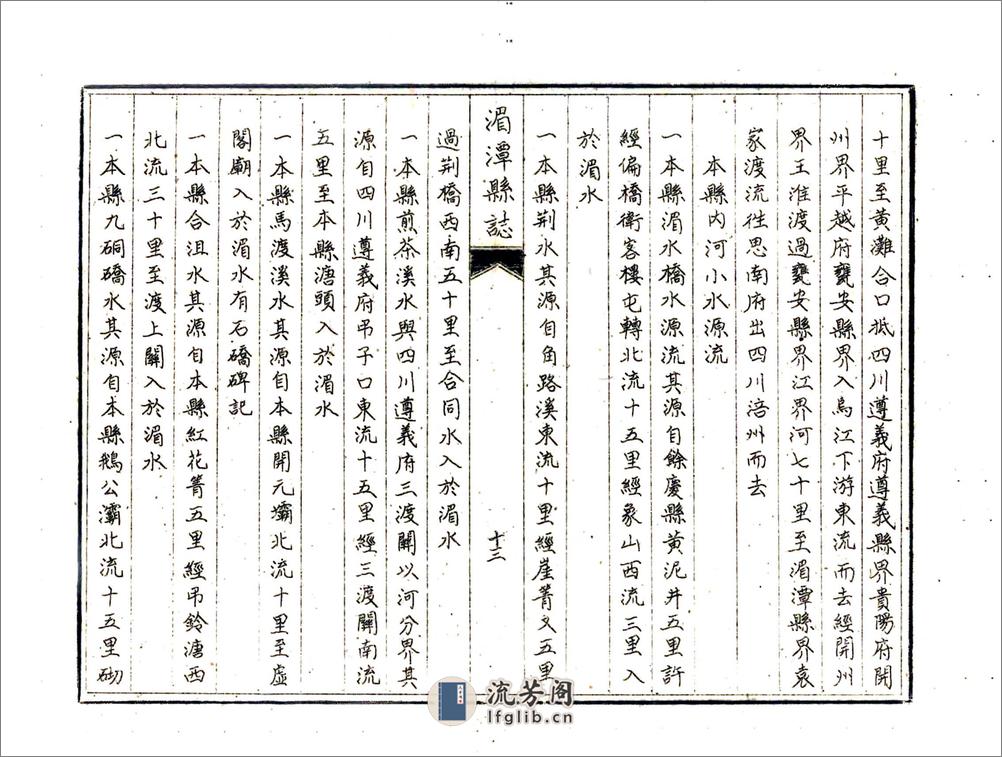 十里至黃灘合口抵四川遵義府遵義縣界貴陽府開
州界平越府甕安縣界入烏江下游東流而去經開州
界王淮渡過甕安縣界江界河七十里至湄潭縣界袁
家渡流徃思南府出四川涪州而去
本縣內河小水源流
一本縣湄水橋水源流其源自餘慶縣黃泥井五里許
經偏橋衛客樓屯轉北流十五里經象山西流三里入
於湄水
一本縣荆水其源自角路溪東流十里經崖菁又五里
湄潭縣誌
十三
過荆橋西南五十里至合同水入於湄水
一本縣煎茶溪水與四川遵義府三渡關以河分界其
源自四川遵義府吊子口東流十五里經三渡關南流
五里至本縣溏頭入於湄水
一本縣馬渡溪水其源自本縣開元壩北流十里至虛
閣廟入於湄水有石礄碑記
一本縣合沮水其源自本縣紅花菁五里經吊鈴溏西
北流三十里至渡上關入於湄水
一本縣九硐礄水其源自本縣鵝公灞北流十五里砌
流芳阁
lfglib.cn